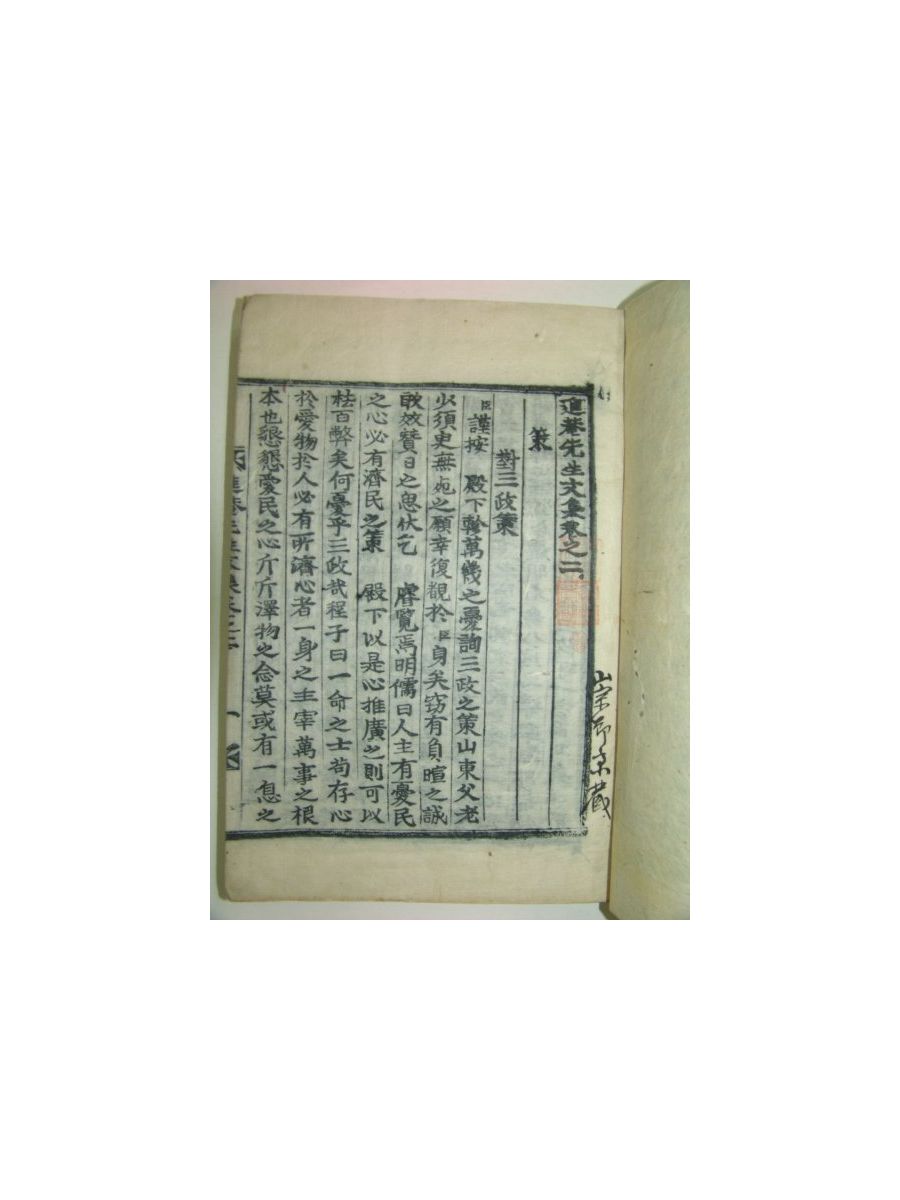 進菴先生文集卷之二
策
對三政策
臣謹按 殿下軫萬幾之憂詢三政之策山東父老
少須臾無死之願幸復覩於臣身矣窃有負暄之誠
敢效贊日之思伏乞 睿覽焉明儒曰人主有憂民
之心必有濟民之策 殿下以是心推廣之則可以
祛百弊矣何憂乎三政哉程子曰一命之士苟存心
於愛物於人必有所濟心者一身之主宰萬事之根
本也懇懇愛民之心斤斤澤物之念莫或有一息之